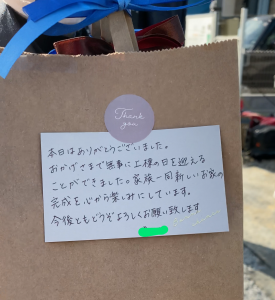 Thank
you
本日はありがとうございました。
おかげさまで無事に上棟の日を迎える
ことができました。家族一同新しいお家の
完成を心から楽しみにしています。
今後ともどうぞよろしくお願い致します